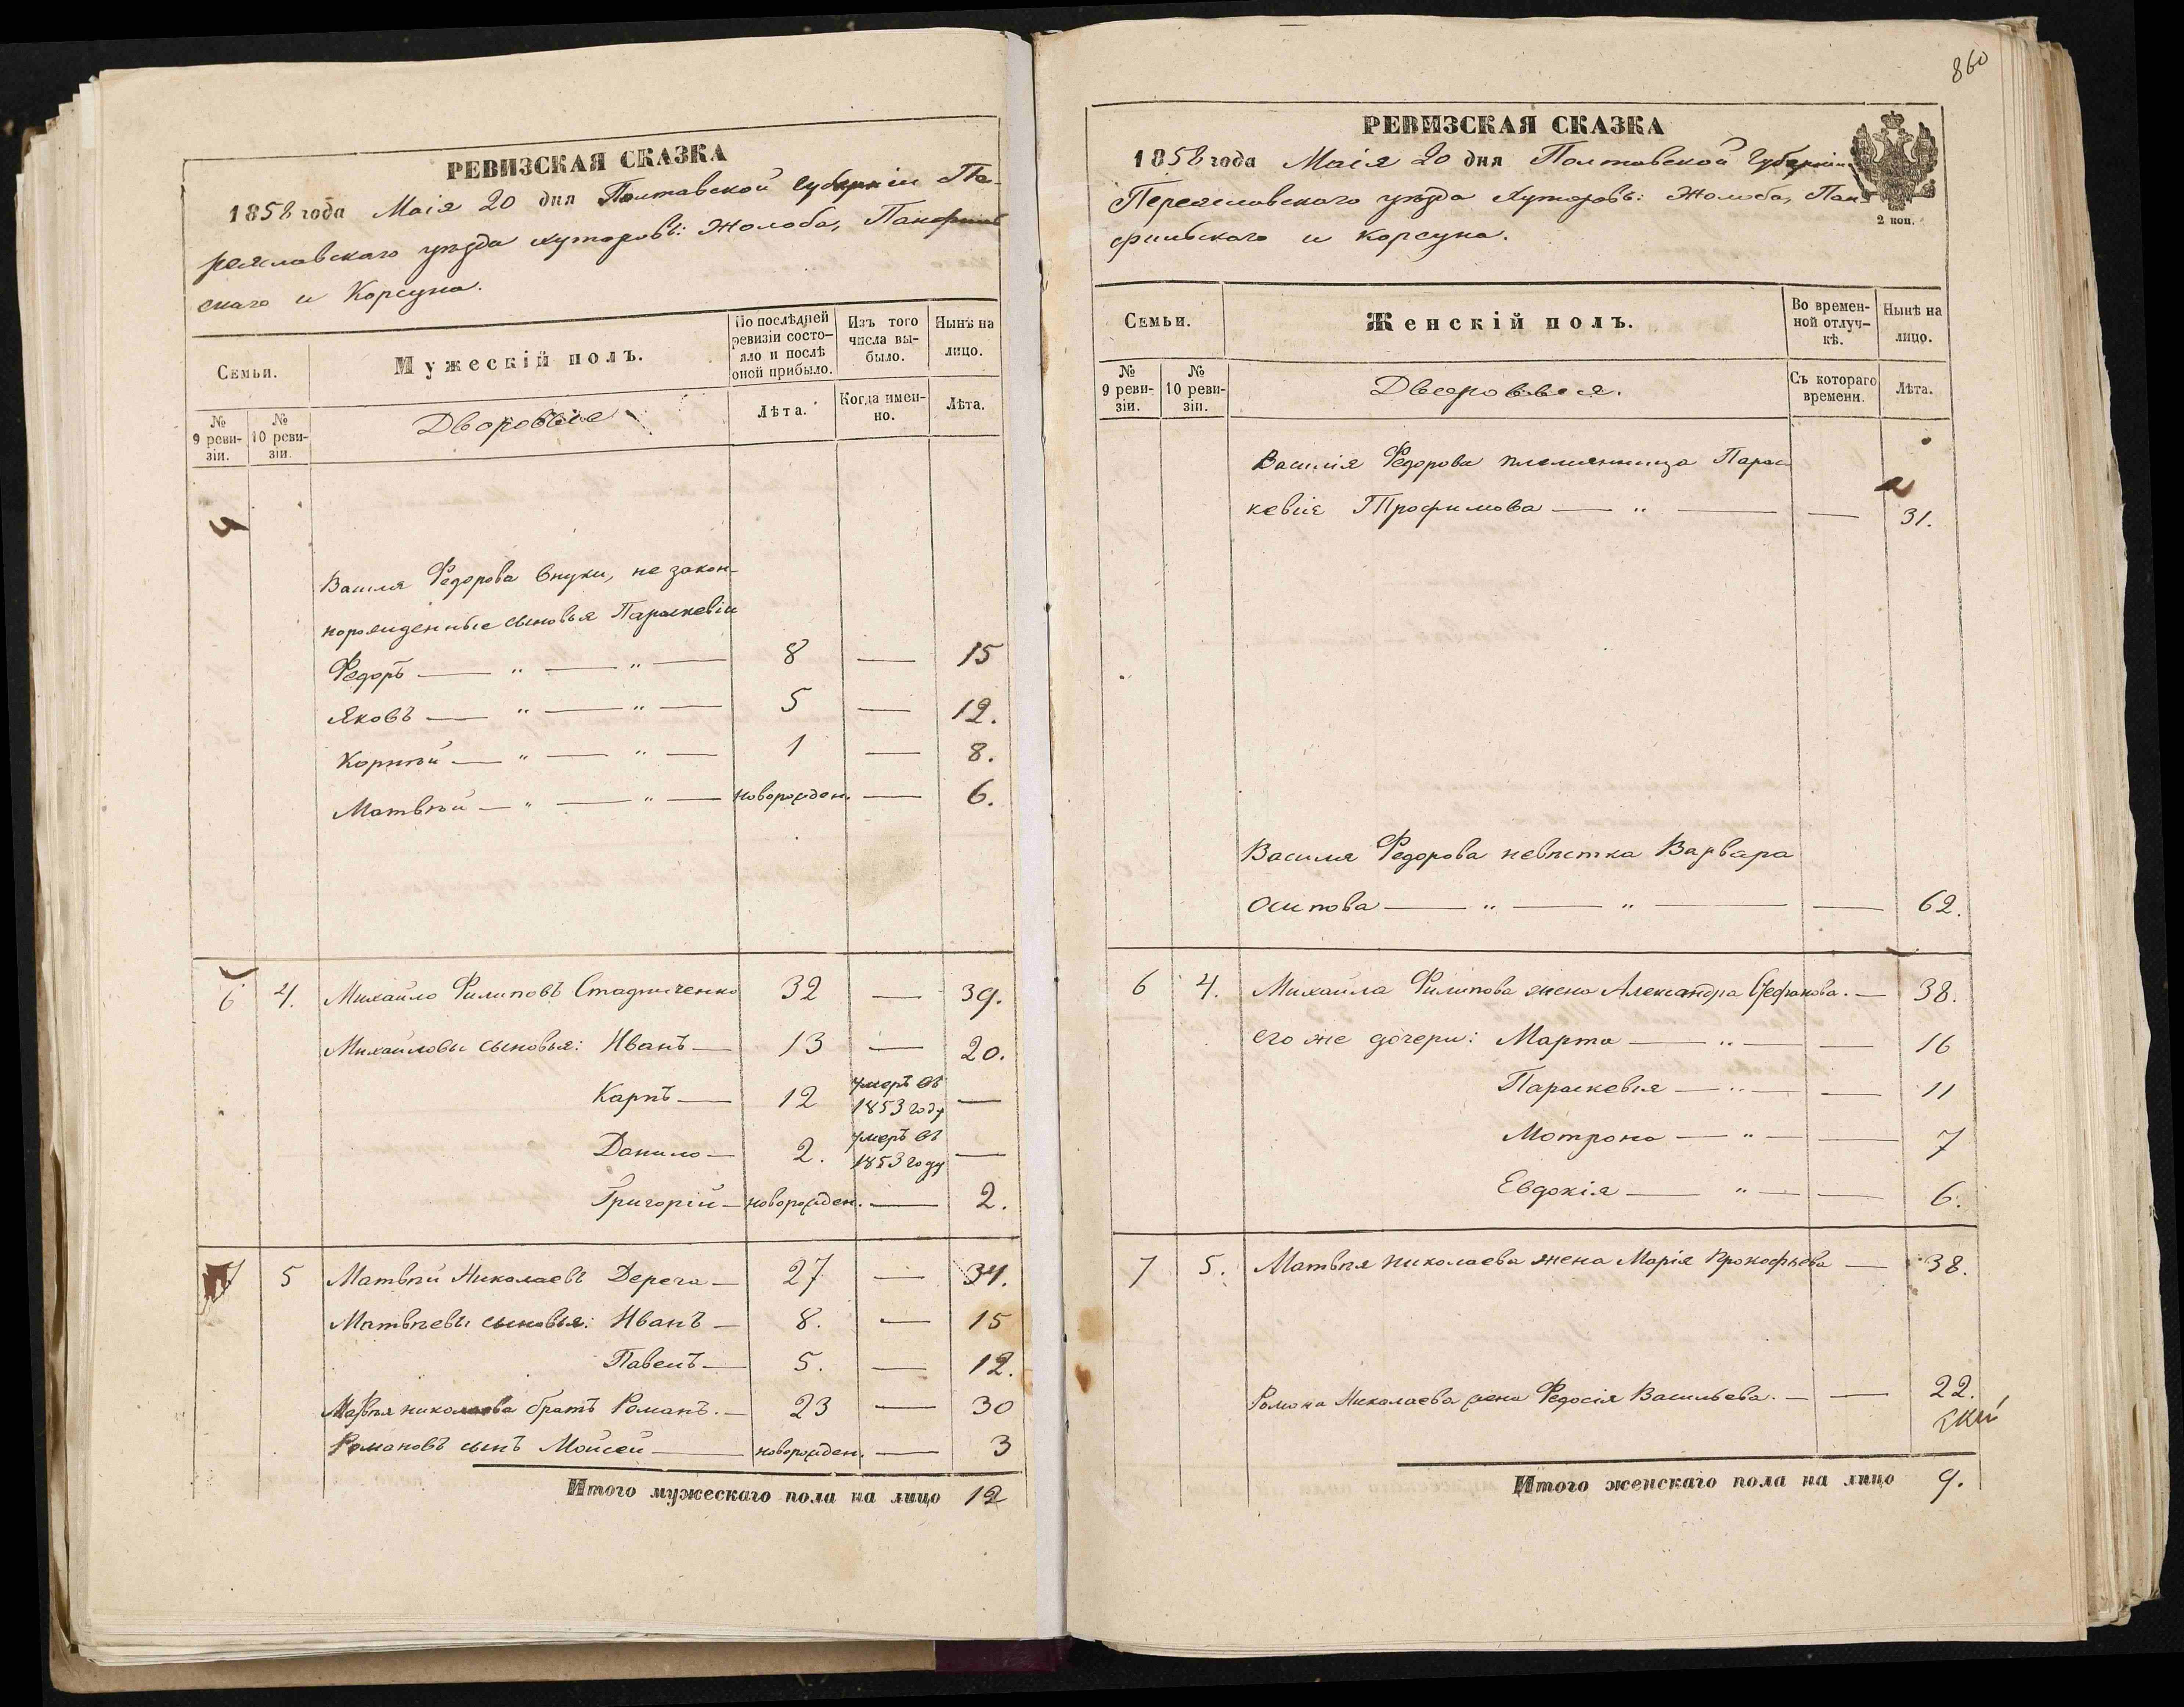 РЕВИЗСКАЯ СКАЗКА
1858 года Маія 20 дня Полтавской губерніи Пе-
реяславскаго уѣзда хуторовъ: Жолоба, Панфиль
скаго и Корсуна.
Семьи.
Мужескій полъ.
По послѣдней ревизіи состо-
яло и послѣ оной прибыло.
Изъ того числа вы-
было.
Нынѣ на лицо.
№ 9 реви-
зіи.
№ 10 реви-
зіи.
Дворовые
Лѣта.
Когда имен-
но.
Лѣта.
5
Василя Федорова внуки, не закон-
норожденные сыновья Параскевіи
Федоръ — " — " — 8 — 15
Яковъ — " — " — 5 — 12.
Корнѣй — " — " — 1 — 8.
Матвѣй — " — " — новорожден. — 6.
6 4. Михайло Филиповъ Стадниченко 32 — 39.
Михайловы сыновья: Иванъ — 13 — 20.
Карпъ — 12 умеръ въ 1853 году —
Данило — 2. умеръ въ 1853 году —
Григорій — новорожден. — 2.
7 5 Матвѣй Николаевъ Дерега — 27 — 34.
Матвѣевы сыновья: Иванъ — 8. — 15
Павелъ — 5. — 12.
Матвѣя николаева братъ Романъ. — 23 — 30
Романовъ сынъ Мойсей — новорожден. — 3
Итого мужескаго пола на лицо 12
860
РЕВИЗСКАЯ СКАЗКА
1858 года Маія 20 дня Полтавской Губерніи
Переяславскаго уѣзда Хуторовъ: Жолоба, Пан-
фильскаго и Корсуна.
2 коп.
Семьи.
Женскій полъ.
Во времен-
ной отлуч-
кѣ.
Нынѣ на лицо.
№ 9 реви-
зіи.
№ 10 реви-
зіи.
Дворовыя.
Съ котораго времени.
Лѣта.
Василія Федорова племянница Парас
кевія Трофимова — " — — 31.
Василя Федорова невѣстка Варвара
Осипова — " — " — — 62.
6 4. Михайла Филипова жена Александра Стефанова. — 38.
его же дочери: Марта — " — — 16
Параскевія — " — — 11
Мотрона — " — — 7
Евдокія — " — — 6.
7 5. Матвѣя николаева жена Марія Прокофьева — 38.
Романа Николаева жена Федосія Васильева. — — 22.
Итого женскаго пола на лицо 9.